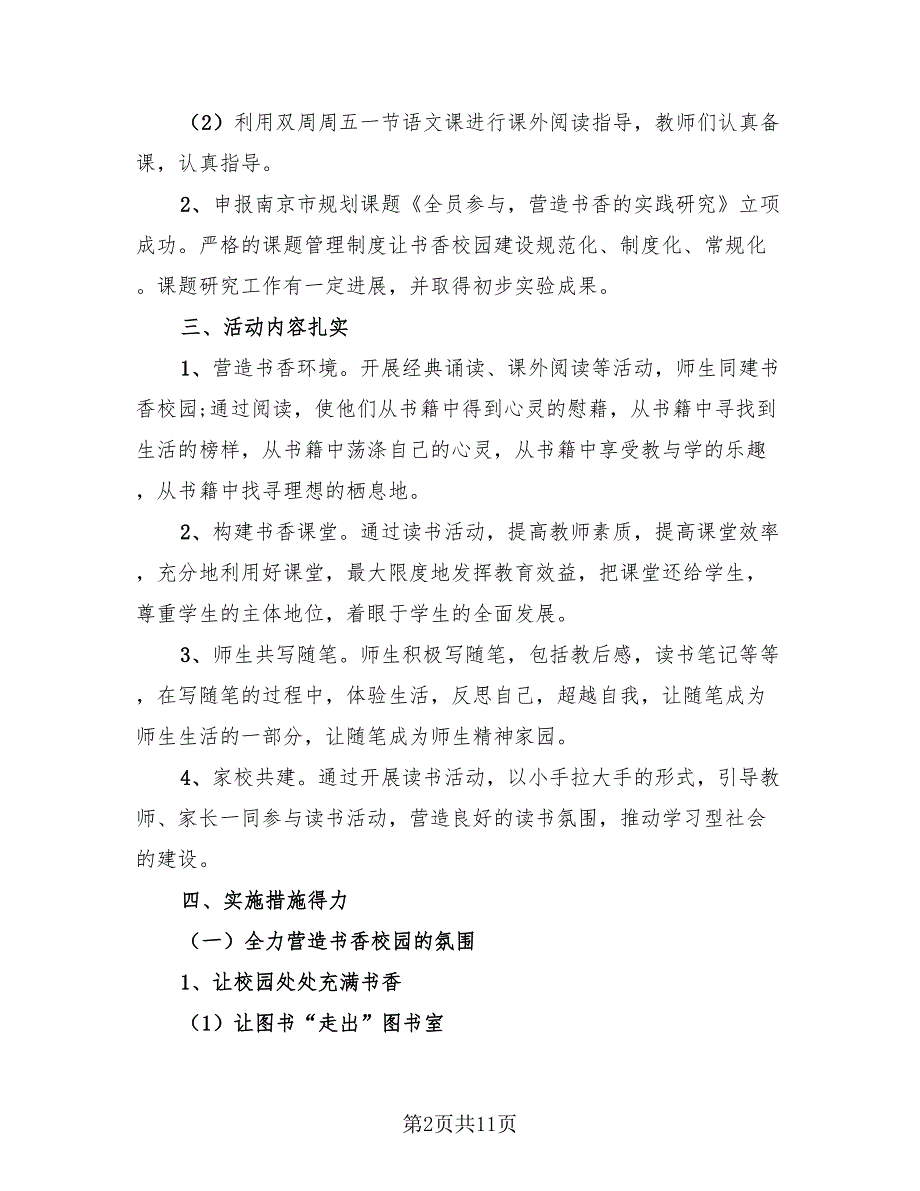 （2）利用双周周五一节语文课进行课外阅读指导，教师们认真备
课，认真指导。
2、申报南京市规划课题《全员参与，营造书香的实践研究》立项
成功。严格的课题管理制度让书香校园建设规范化、制度化、常规化
。课题研究工作有一定进展，并取得初步实验成果。
三、活动内容扎实
1、营造书香环境。开展经典诵读、课外阅读等活动，师生同建书
香校园;通过阅读，使他们从书籍中得到心灵的慰藉，从书籍中寻找到
生活的榜样，从书籍中荡涤自己的心灵，从书籍中享受教与学的乐趣
，从书籍中找寻理想的栖息地。
2、构建书香课堂。通过读书活动，提高教师素质，提高课堂效率
，充分地利用好课堂，最大限度地发挥教育效益，把课堂还给学生，
尊重学生的主体地位，着眼于学生的全面发展。
3、师生共写随笔。师生积极写随笔，包括教后感，读书笔记等等
，在写随笔的过程中，体验生活，反思自己，超越自我，让随笔成为
师生生活的一部分，让随笔成为师生精神家园。
4、家校共建。通过开展读书活动，以小手拉大手的形式，引导教
师、家长一同参与读书活动，营造良好的读书氛围，推动学习型社会
的建设。
四、实施措施得力
（一）全力营造书香校园的氛围
1、让校园处处充满书香
（1）让图书“走出”图书室
第2页共11页